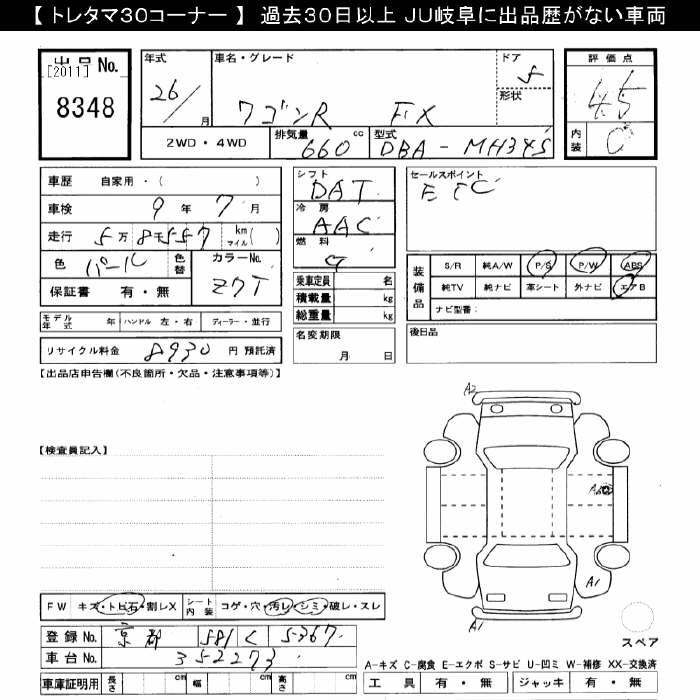 【 トレタマ30コーナー 】 過去30日以上 JU岐阜に出品歴がない車両
出品 No.
[2011]
8348
年式
26/
月
車名・グレード
ワゴンR FX
ドア
5
形状
2WD・4WD
排気量
660 cc
型式
DBA - MH34S
評価点
4.5
内装
C
車歴 自家用・( )
車検 9 年 7 月
走行 5万 8千557 km マイル ( )
色 パール
色替
カラーNo.
Z7T
保証書 有・無
モデル年式 年
ハンドル 左・右
ディーラー・並行
リサイクル料金 8930 円 預託済
シフト
DAT
冷房
AAC
燃料
G
乗車定員 名
積載量 kg
総重量 kg
名変期限
月 日
セールスポイント
ETC
装備品
S/R 純A/W P/S P/W ABS
純TV 純ナビ 革シート 外ナビ エアB
ナビ型番:
後日品
【出品店申告欄(不良箇所・欠品・注意事項等)】
【検査員記入】
A2
A1
A1
FW キズ・トビ石・割レX
シート内装 コゲ・穴・汚レ・シミ・破レ・スレ
登録 No. 京都 581 く 5367
車台 No. 352273
車庫証明用 長さ cm 幅 cm 高さ cm
スペア
A-キズ C-腐食 E-エクボ S-サビ U-凹ミ W-補修 XX-交換済
工具 有・無 ジャッキ 有・無